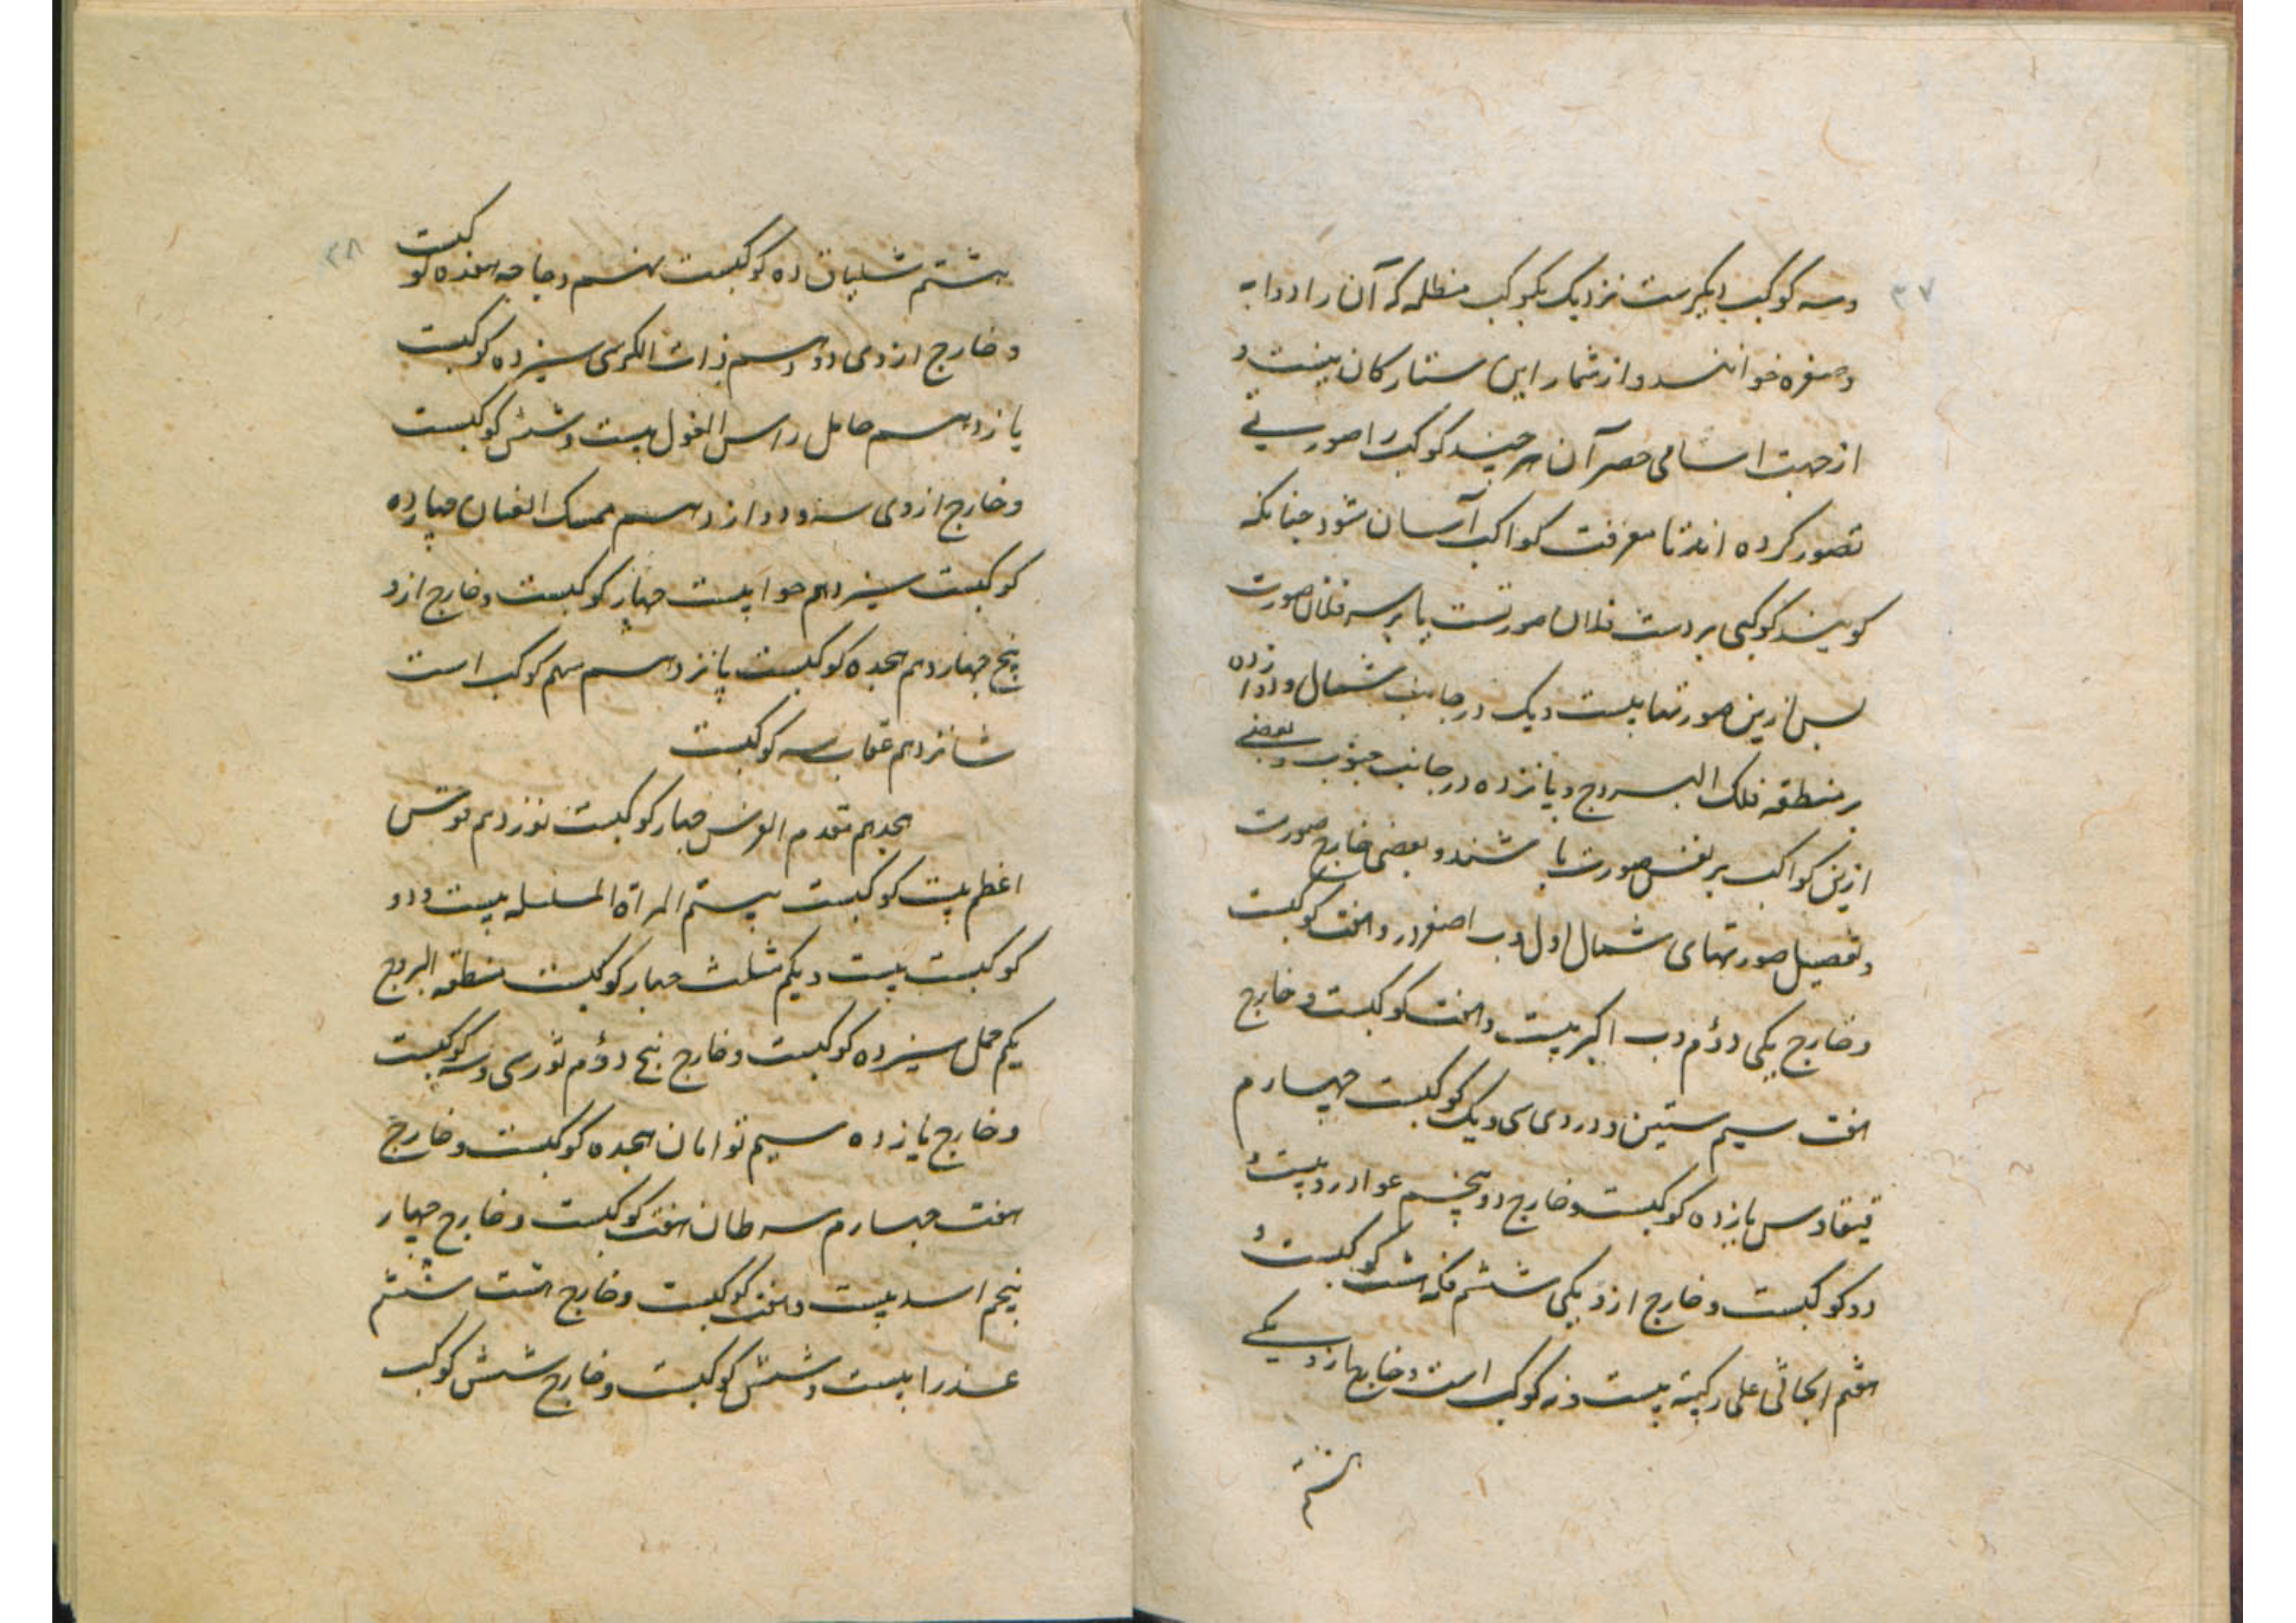 ۳۷
وسه کوکب دیکرست نزدیک بکوکب مظلمه که آن را ذوابه
وصفره خوانند و از شمار این ستارکان نیست و
از جهت اسامی حصر آن هر چند کوکب را صورتی
تصور کرده اند تا معرفت کواکب آسان شود چنانکه
کویند کوکبی بر دست فلان صورتست یا بر سه فلان صورت
بس ازین صورتها بیست ویک در جانب شمال و دوازده
بر منطقه فلک البروج و پانزده در جانب جنوب و بعضی
ازین کواکب بر نفس صورت باشند و بعضی خارج صورت
و تفصیل صورتهای شمال اول دب اصغر در و هفت کوکبست
و خارج یکی دوم دب اکبر بیست و هفت کوکبست و خارج
هفت سیم ستین و در وی سی و یک کوکبست چهارم
قیقاوس یازده کوکبست و خارج دو پنجم عوا درو بیست و
دو کوکبست و خارج ازو یکی ششم فکه هشت کوکبست و
هفتم الجاثی علی رکبته بیست و نه کوکب است و خارج ازو یکی
هشتم
۳۸
هشتم شلیاق ده کوکبست نهم دجاجه هفده کوکبست
و خارج از وی دو دهم ذات الکرسی سیزده کوکبست
یازدهم حامل راس الغول بیست و شش کوکبست
و خارج از وی سه و دوازدهم ممسک العنان چهارده
کوکبست سیزدهم حوا بیست چهار کوکبست و خارج ازو
پنج چهاردهم هجده کوکبست پانزدهم سهم کوکب است
شانزدهم عقاب سه کوکبست
هجدهم مقدم الفرس چهار کوکبست نوزدهم فرس
اعظم بیست کوکبست بیستم المراة المسلسله بیست و دو
کوکبست بیست و یکم مثلث چهار کوکبست منطقه البروج
یکم حمل سیزده کوکبست و خارج پنج دوم ثور سی و سه کوکبست
و خارج یازده سیم توامان هجده کوکبست و خارج
هفت چهارم سرطان هفت کوکبست و خارج چهار
پنجم اسد بیست و هفت کوکبست و خارج هشت ششم
عذرا بیست و شش کوکبست و خارج شش کوکب